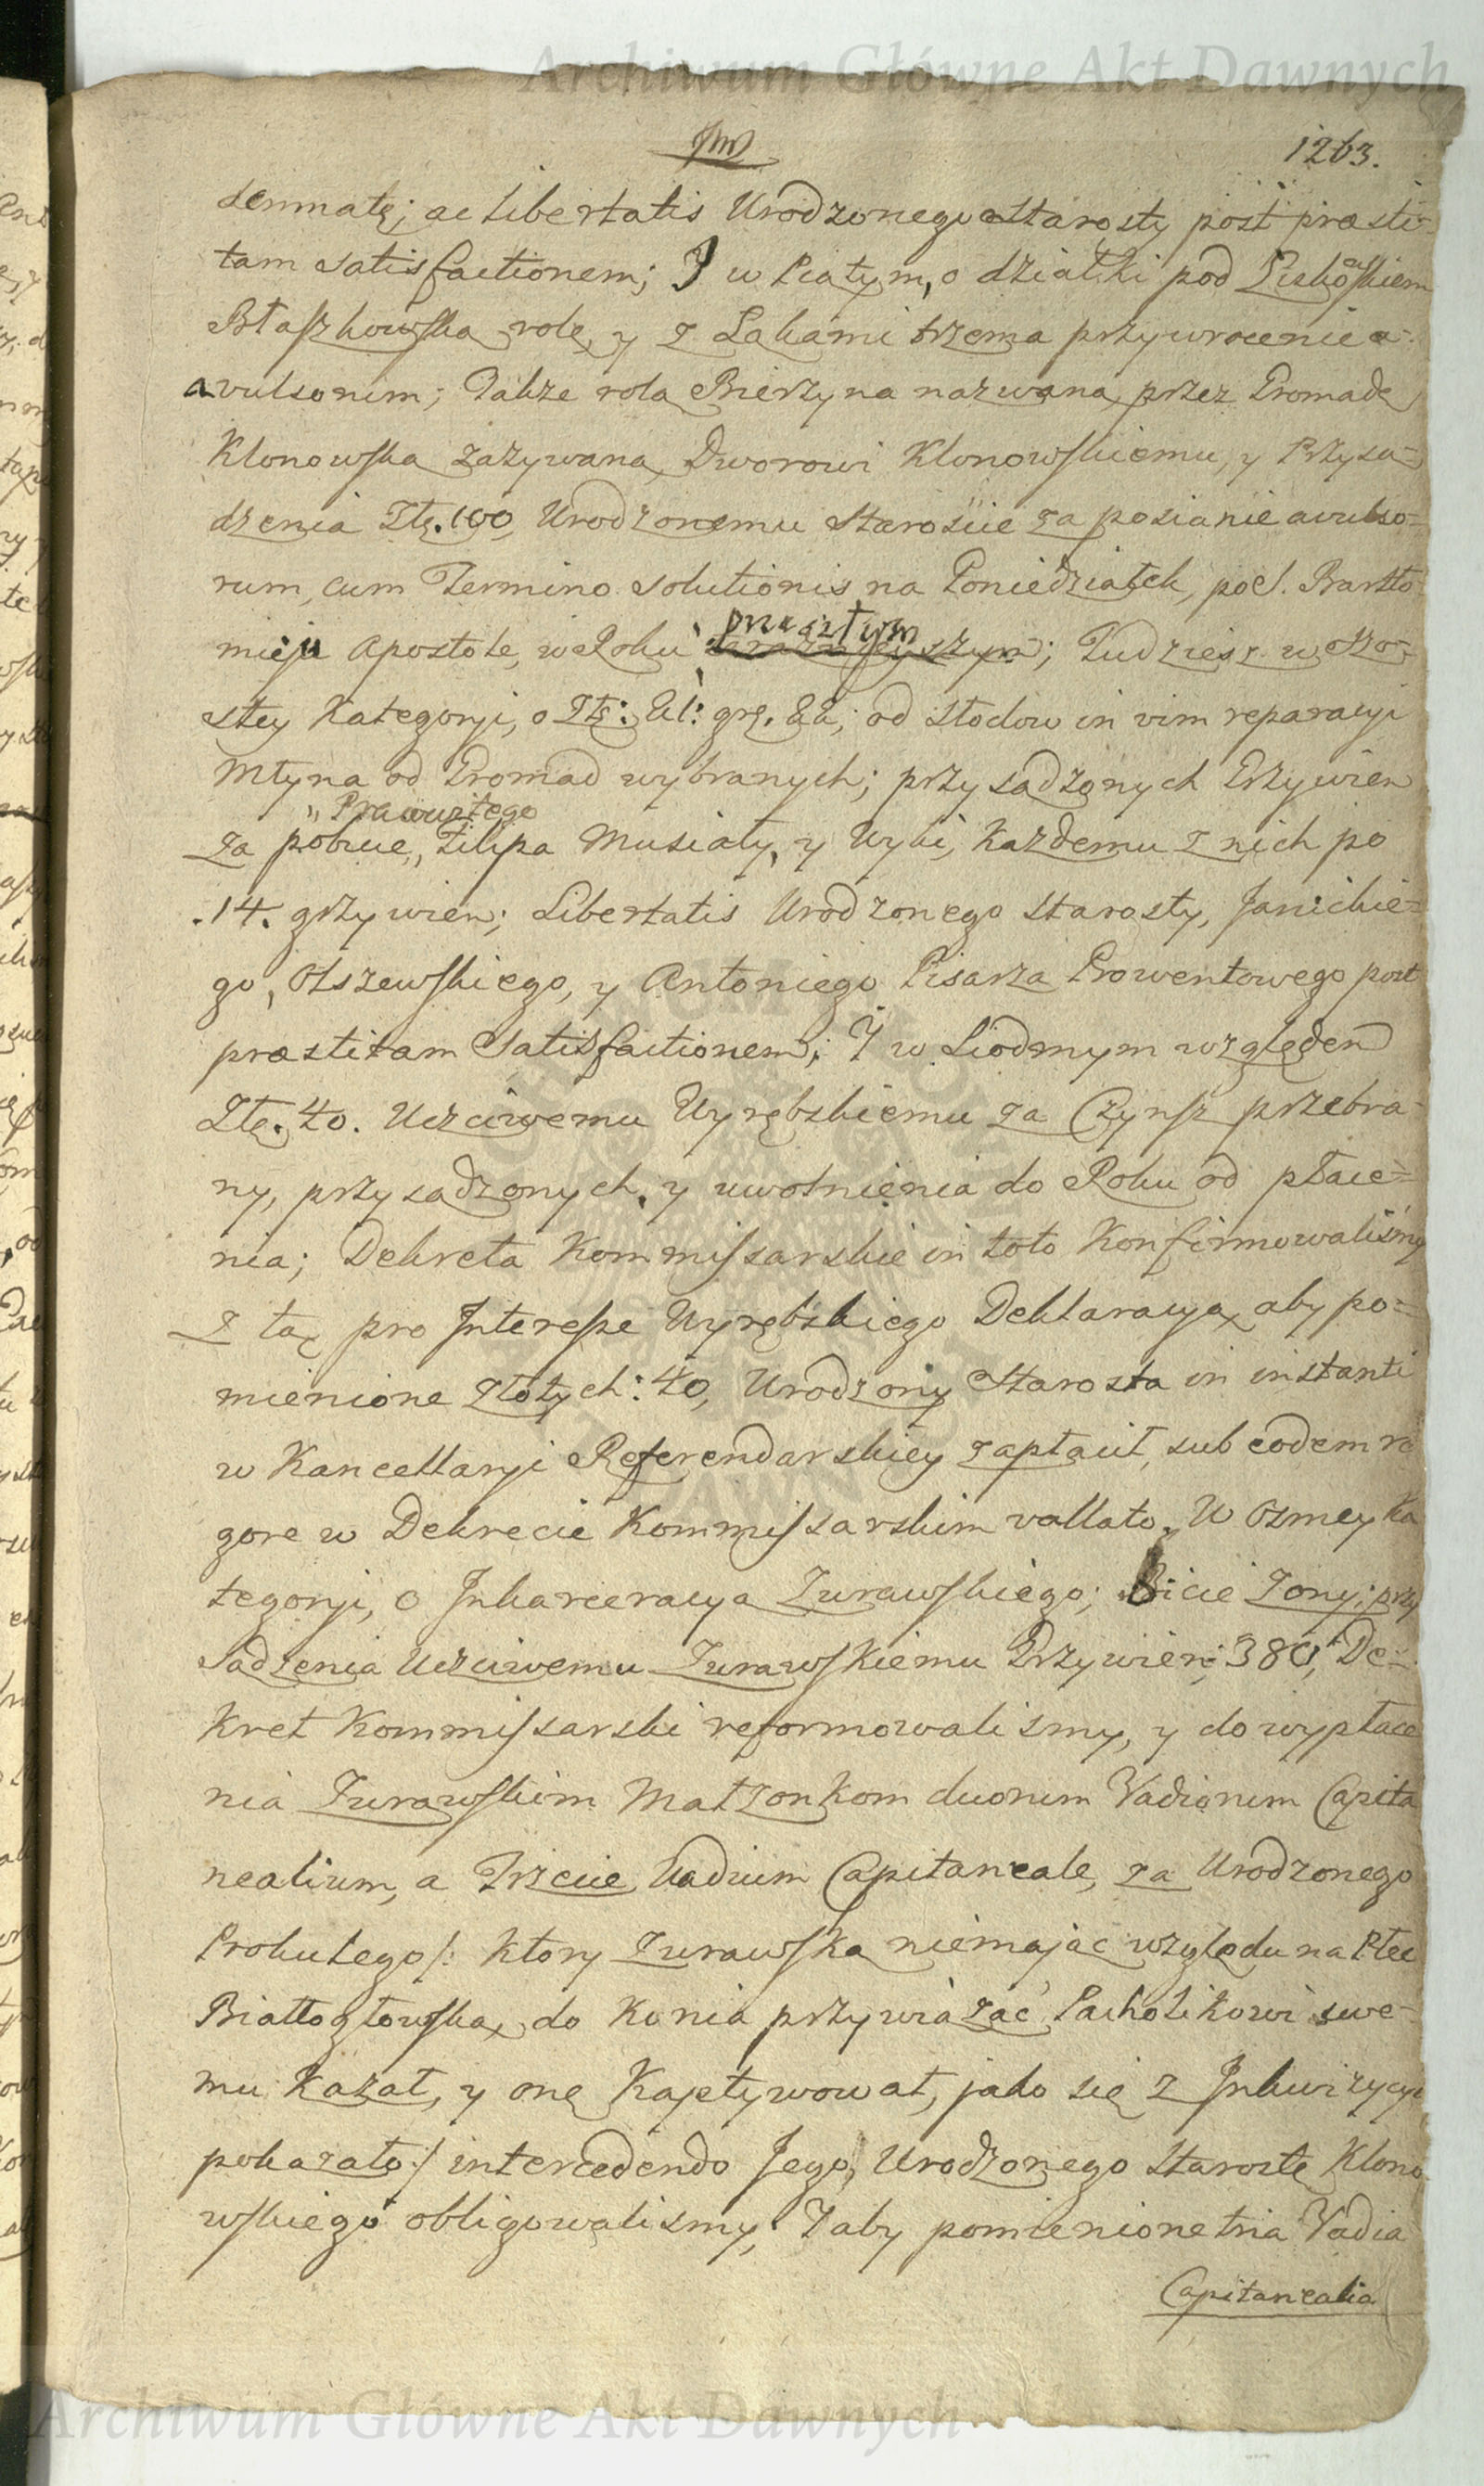 Archiwum Główne Akt Dawnych
1263.
demnatę; ac Libertatis Urodzonego Starosty post præsti-
tam satisfactionem; I w Piątym, o działki pod
Błaszkowską rolę, y z Łąkami trzema przywrocenie a-
avulsorum; Także rola Bierzyna nazwana, przez Gromadę
Klonowską zażywana, Dworowi Klonowskiemu, y Przysą-
dzenia Złł. 100, Urodzonemu Starości za posianie avulso-
rum, cum Termino solutionis na Poniedziałek, po S. Bartło-
mieju Apostole, w Roku przeszłym; Tudziesz w Szo-
stey Kategoryi, o Złł: gr. od słodow in vim reparacyi
Młyna od Gromad wybranych; przysądzonych Grzywien
Prawuytego
za pobicie, Filipa Musiały, y Wyki, Każdemu z nich po
.14. grzywien; Libertatis Urodzonego Starosty, Janickie-
go, Olszewskiego, y Antoniego Pisarza Prowentowego post
præstitam Satisfactionem; I w Siodmym względem
Złł. 40. Uczciwemu Wyrębskiemu za Czynsz przebra-
ny, przysądzonych, y uwolnienia do Roku od płace-
nia; Dekreta Kommissarskie in toto Konfirmowaliśmy
z tą pro Interesse Wyrębskiego Deklaracyą, aby po-
mienione złotych: 40, Urodzony Starosta in instanti
w Kancellaryi Referendarskiey zapłacił, sub eodem ri
gore w Dekrecie Kommissarskim vallato. W Osmey Ka
tegoryi, o Inkarceracyą Zurawskiego; Bicie Zony; przy
sądzenia Uczciwemu Zurawskiemu Grzywien; 380; De-
kret Kommissarski reformowaliśmy, y do wypłace
nia Zurawskim Małzonkom duorum Vadiorum Capita
nealium, a Trzecie Vadium Capitaneale, za Urodzonego
Prokutego/: ktory Zurawską niemając względu na Płeć
Białłogłowską, do Konia przywiązać Pachołikowi swe-
mu Kazał, y onę Kaptywował, jako się z Inkwizycyi
pokazało:/ intercedendo Jego, Urodzonego Starostę Klono
wskiego obligowaliśmy; I aby pomienione tria Vadia
Capitanealia
Archiwum Główne Akt Dawnych